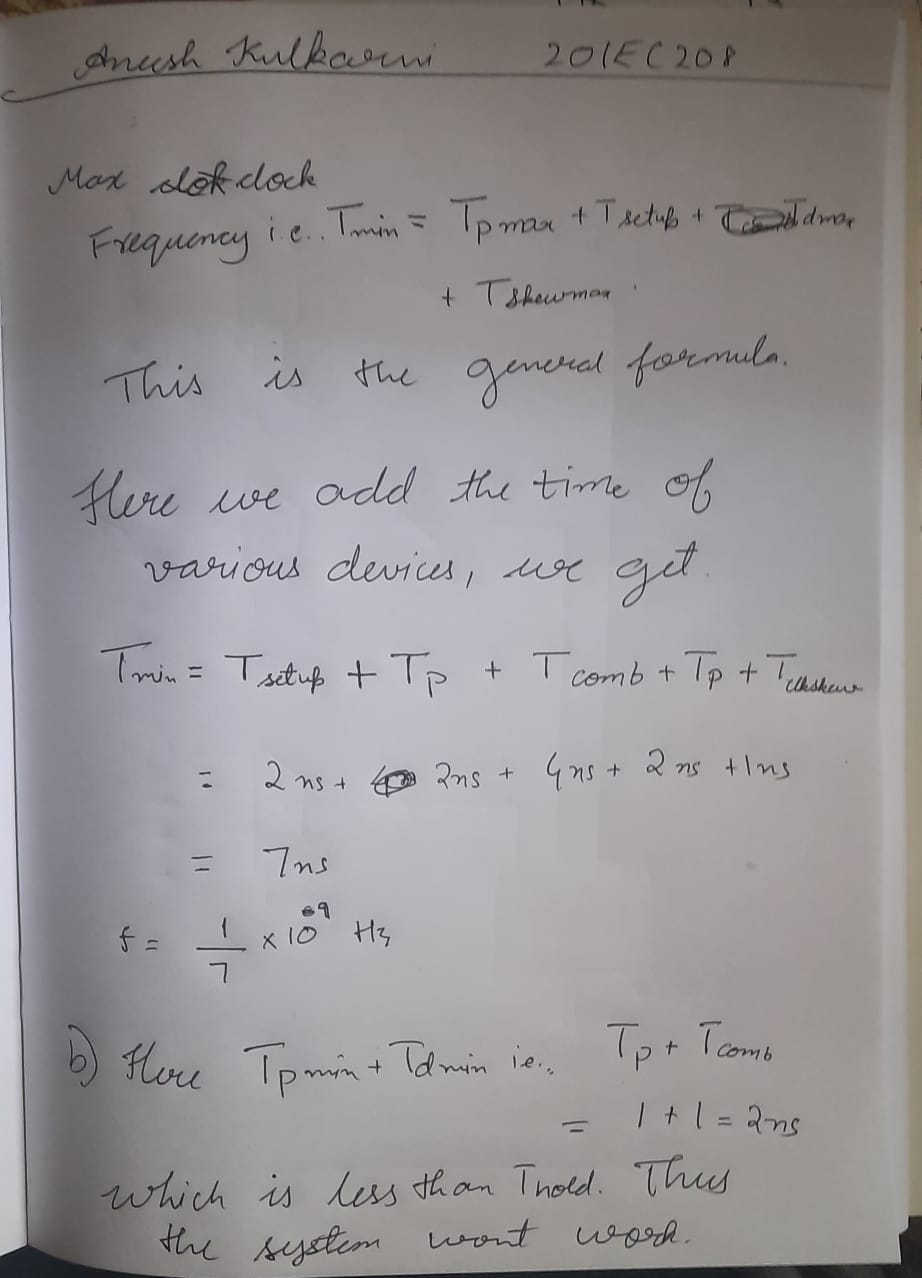 Aneesh Kulkarni 201EC208
Max clock
Frequency i.e., Tmin = Tpmax + Tsetup + Tdmax
+ Tskewmax.
This is the general formula.
Here we add the time of
various devices, we get.
Tmin = Tsetup + Tp + Tcomb + Tp + Tclkskew
= 2 ns + 2ns + 4ns + 2 ns + 1ns
= 7ns
f = 1/7 x 10^09 Hz
b) Here Tpmin + Tdmin i.e., Tp + Tcomb
= 1 + 1 = 2ns
which is less than Thold. Thus
the system wont work.